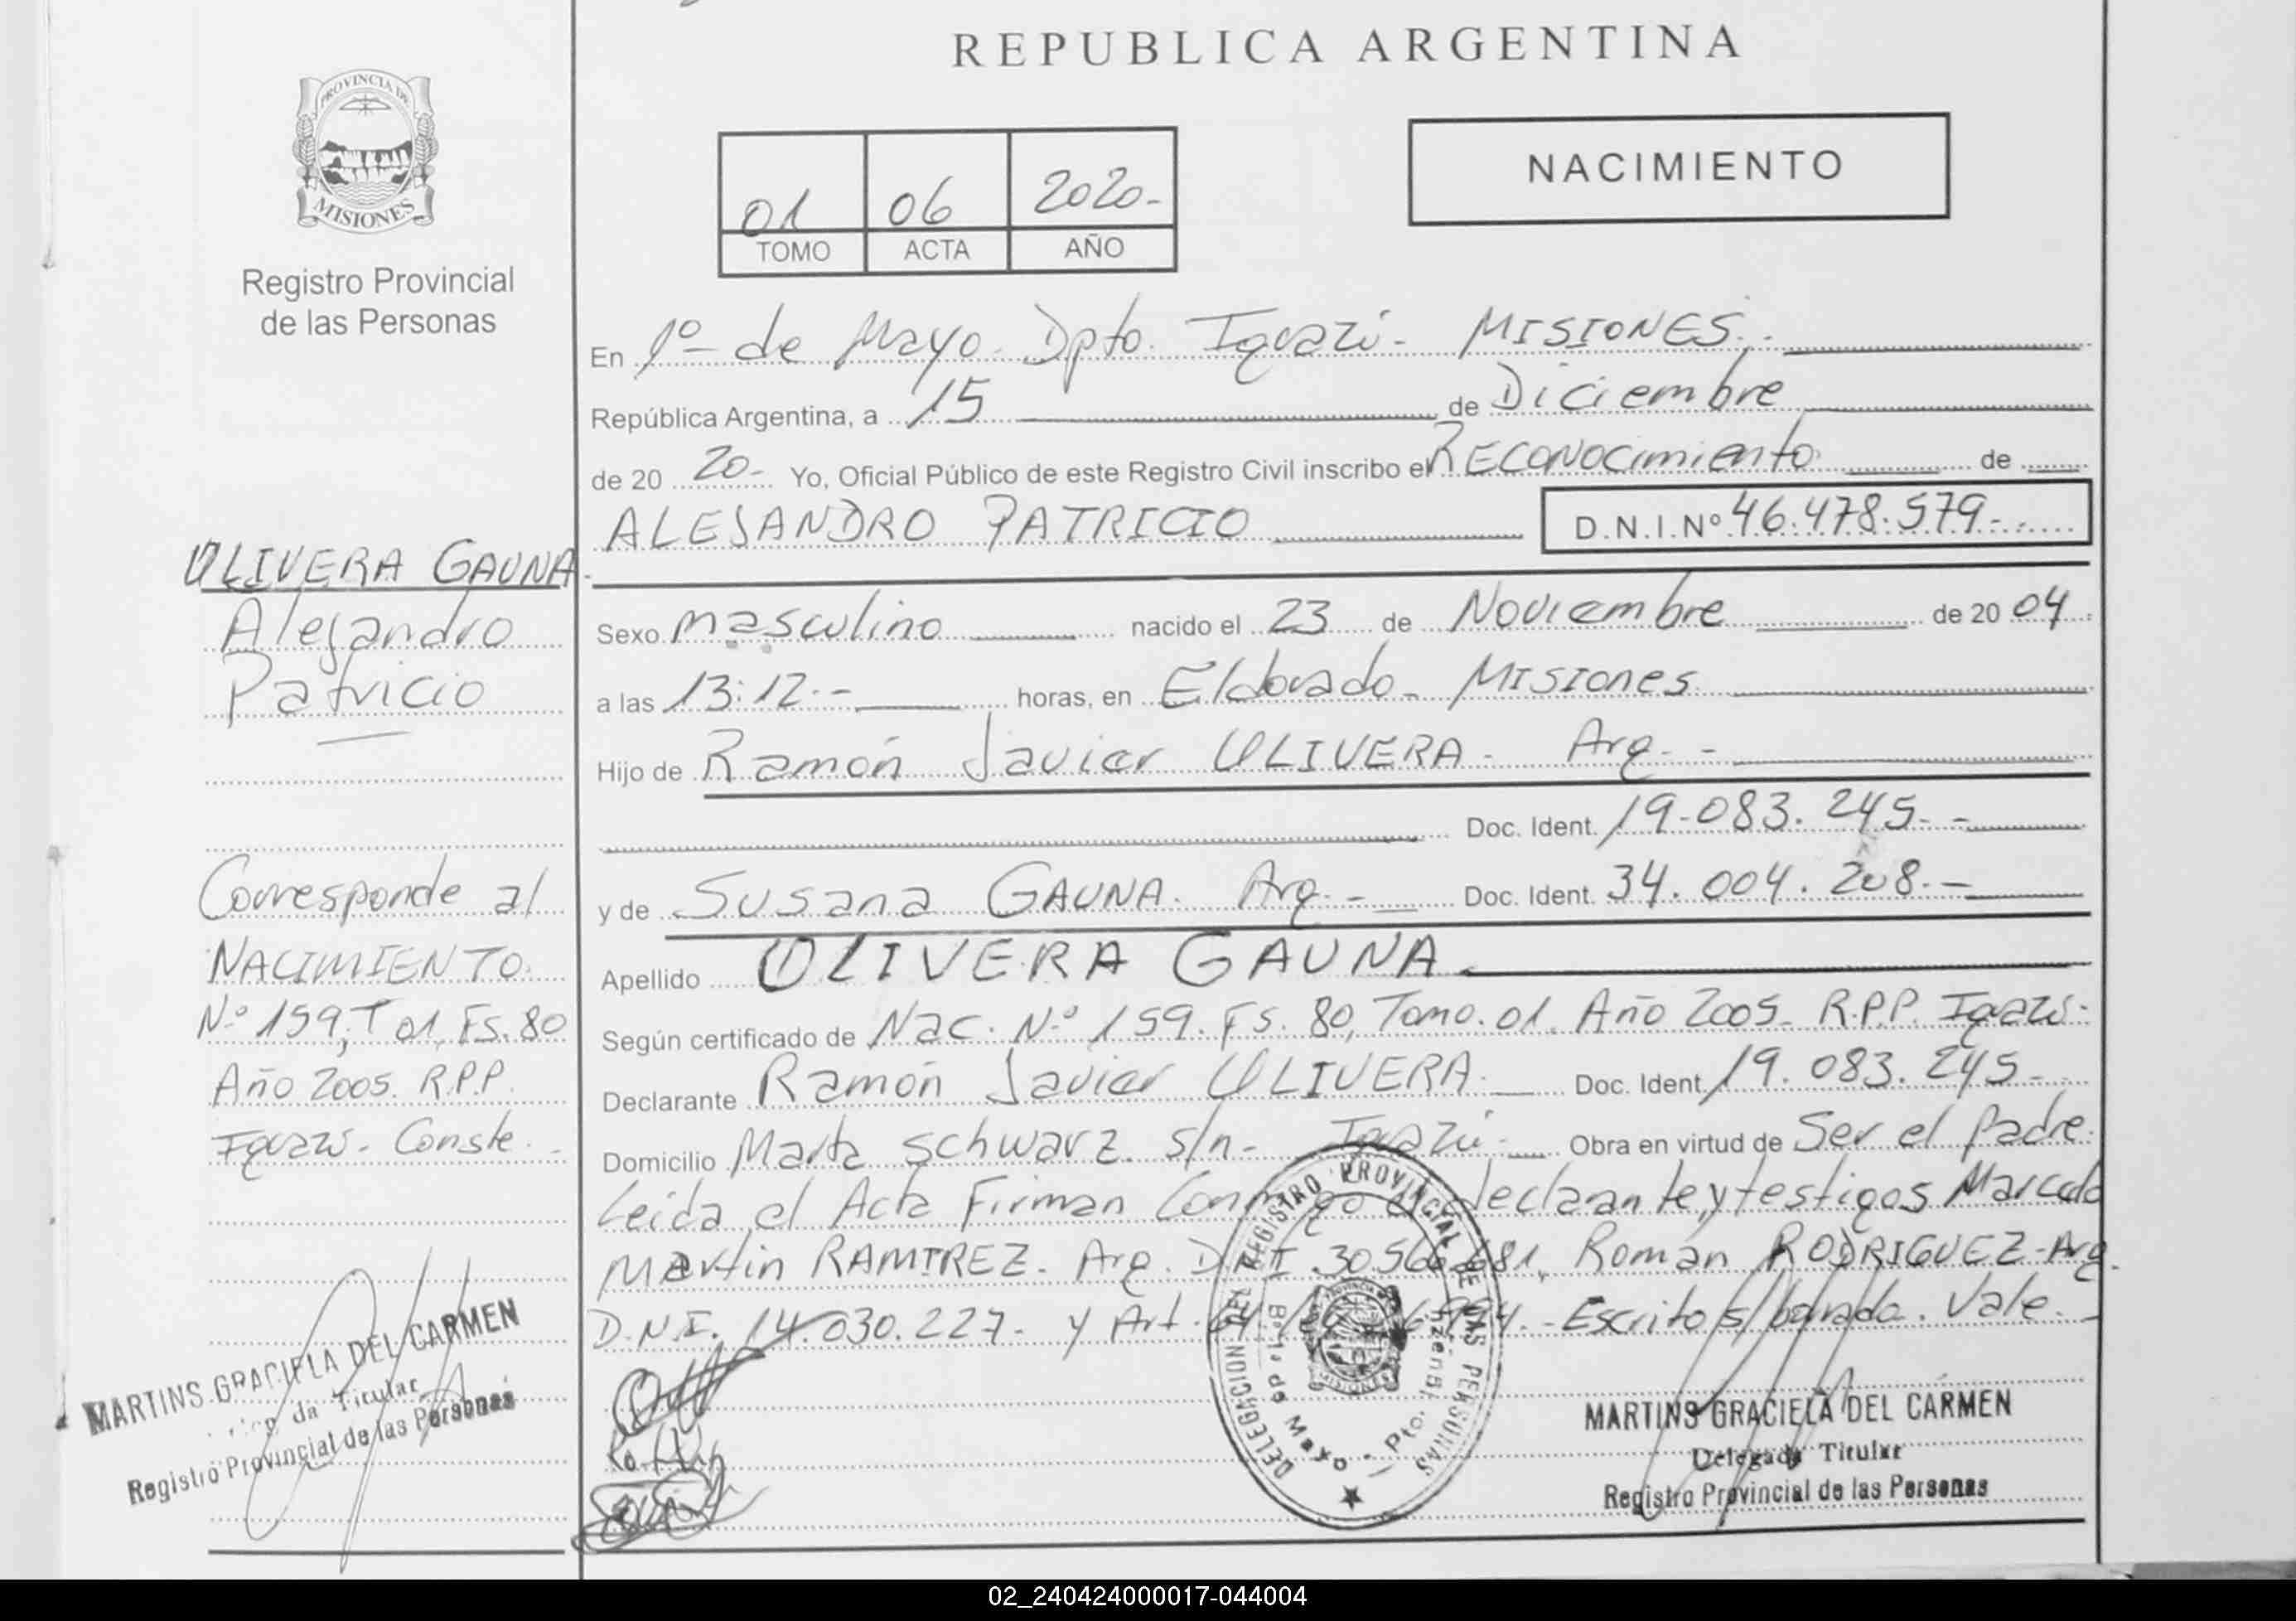 REPUBLICA ARGENTINA
PROVINCIA DE
MISIONES
Registro Provincial
de las Personas
NACIMIENTO
01 06 2020-
TOMO ACTA AÑO
En 1º de Mayo. Dpto. Iguazú- MISIONES.-
República Argentina, a 15 de Diciembre
de 20 20- Yo, Oficial Público de este Registro Civil inscribo el RECONOCimiento de
ALEJANDRO PATRICIO D.N.I.Nº 46.478.579-
Sexo masculino nacido el 23 de Noviembre de 20 04
a las 13:12.- horas, en Eldorado- Misiones
Hijo de Ramón Javier OLIVERA- Arg.-
Doc. Ident. 19.083.245.-
y de Susana GAUNA. Arg.- Doc. Ident. 34.004.208.-
Apellido OLIVERA GAUNA
Según certificado de Nac. Nº 159. Fs. 80, Tomo. 01. Año 2005- R.P.P. Iguazú-
Declarante Ramón Javier OLIVERA. Doc. Ident. 19.083.245-
Domicilio Marta Schwarz s/n- Iguazú- Obra en virtud de Ser el Padre.
Leida el Acta Firman Conmigo el declarante, y testigos Marcelo
Martin RAMIREZ- Arg. D.N.I. 30.566. Román RODRIGUEZ-Arg.
D.N.I. 14.030.227- y Art. Escrito s/borrado. Vale.-
OLIVERA GAUNA-
Alejandro
Patricio
Corresponde al
NACIMIENTO
Nº 159, T 01, Fs. 80
Año 2005. R.P.P.
Iguazú- Conste.-
MARTINS GRACIELA DEL CARMEN
Titular
Registro Provincial de las Personas
DELEGACION DEL REGISTRO PROVINCIAL DE LAS PERSONAS
1 de Mayo - Pto.
MARTINS GRACIELA DEL CARMEN
Delegada Titular
Registro Provincial de las Personas
02_240424000017-044004